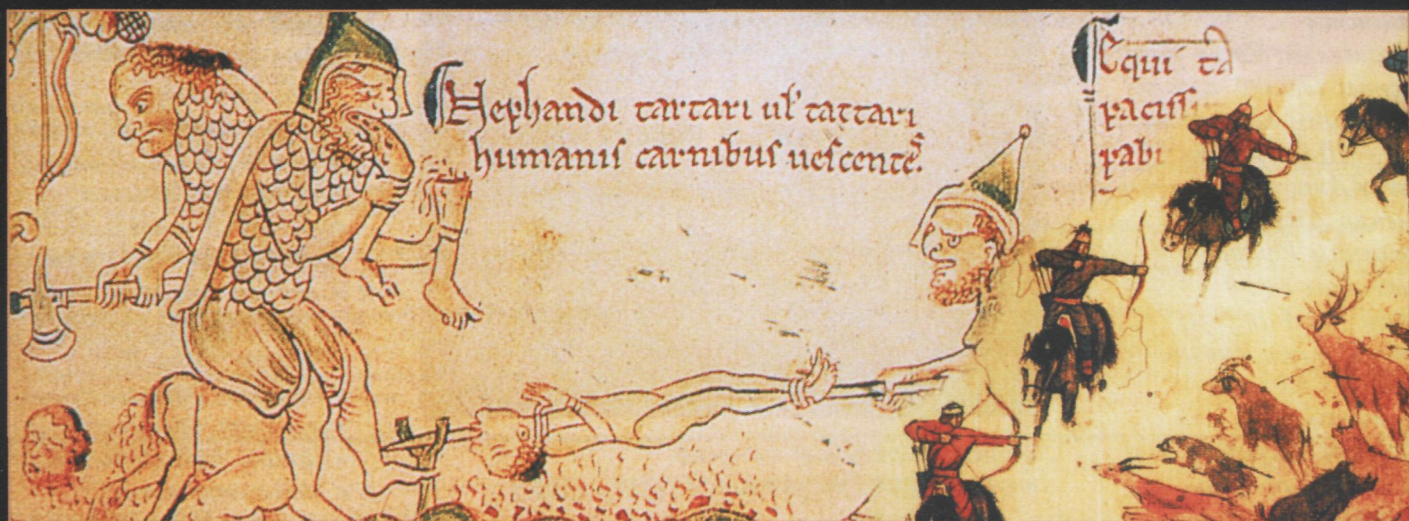 Nephandi tartari ul' tattari
humanis carnibus uescente.
Equi ta
paciss
pab